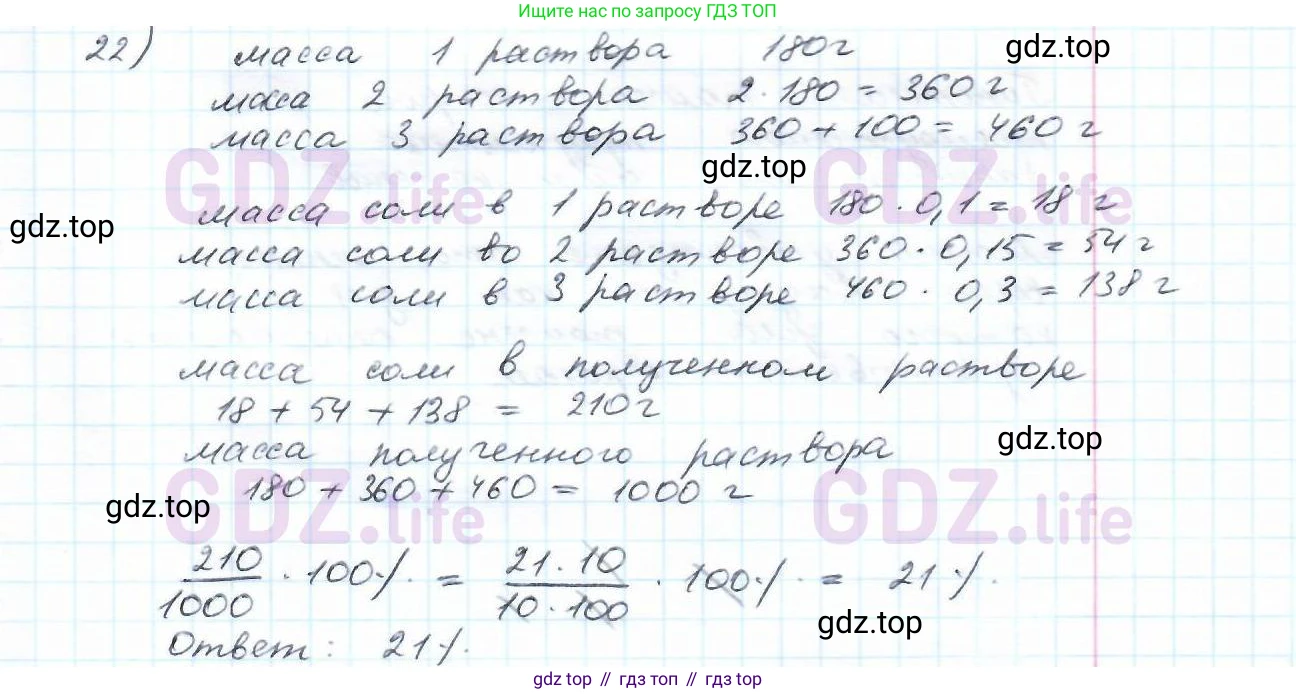 Ищите нас по запросу ГДЗ ТОП
22) масса 1 раствора 180г
gdz.top
масса 2 раствора 2·180 = 360 г
масса 3 раствора 360 + 100 = 460 г
GDZ.life GDZ.life
gdz.top
масса соли в 1 растворе 180 · 0,1 = 18 г
gdz.top
масса соли во 2 растворе 360 · 0,15 = 54 г
масса соли в 3 растворе 460 · 0,3 = 138 г
масса соли в полученном растворе
18 + 54 + 138 = 210 г
масса полученного раствора
gdz.top
GDZ.life GDZ.life
180 + 360 + 460 = 1000 г
gdz.top
210/1000 · 100% = 21·10/10·100 · 100% = 21%.
gdz.top
Ответ: 21%.
gdz top // гдз топ // gdz.top